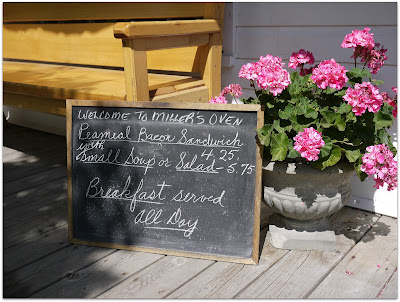 WELCOME TO MILLER'S OVEN
Peameal Bacon Sandwich
4.25
with
Small Soup or Salad - 5.75
Breakfast served
All Day